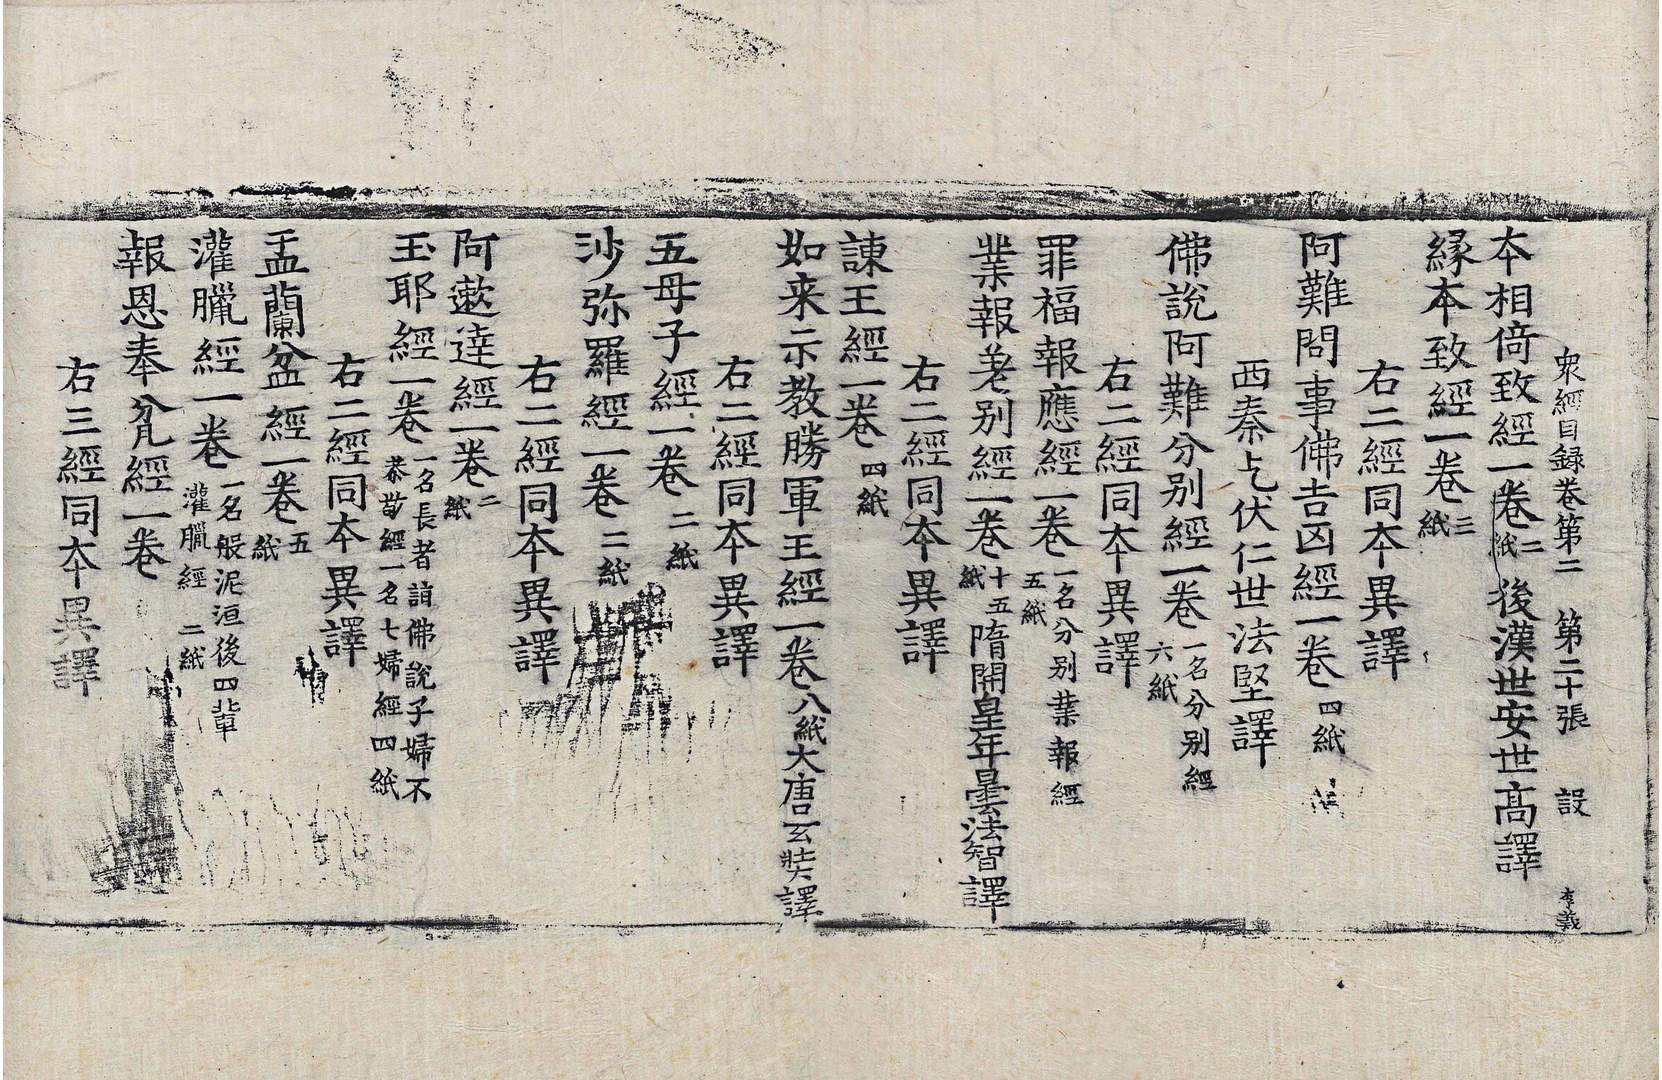 衆經目録卷第二 第二十張 設 李義
本相倚致經一卷二紙後漢世安世高譯
緣本致經一卷三紙
右二經同本異譯
阿難問事佛吉凶經一卷四紙
西秦乞伏仁世法堅譯
佛說阿難分别經一卷一名分别經六紙
右二經同本異譯
罪福報應經一卷一名分别業報經五紙
業報差别經一卷十五紙隋開皇年曇法智譯
右二經同本異譯
諫王經一卷四紙
如来示教勝軍王經一卷八紙大唐玄奘譯
右二經同本異譯
五母子經一卷二紙
沙弥羅經一卷二紙
右二經同本異譯
阿遬達經一卷二紙
玉耶經一卷一名長者詣佛說子婦不恭敬經一名七婦經四紙
右二經同本異譯
盂蘭盆經一卷五紙
灌臘經一卷一名般泥洹後四輩灌臘經二紙
報恩奉瓫經一卷
右三經同本異譯